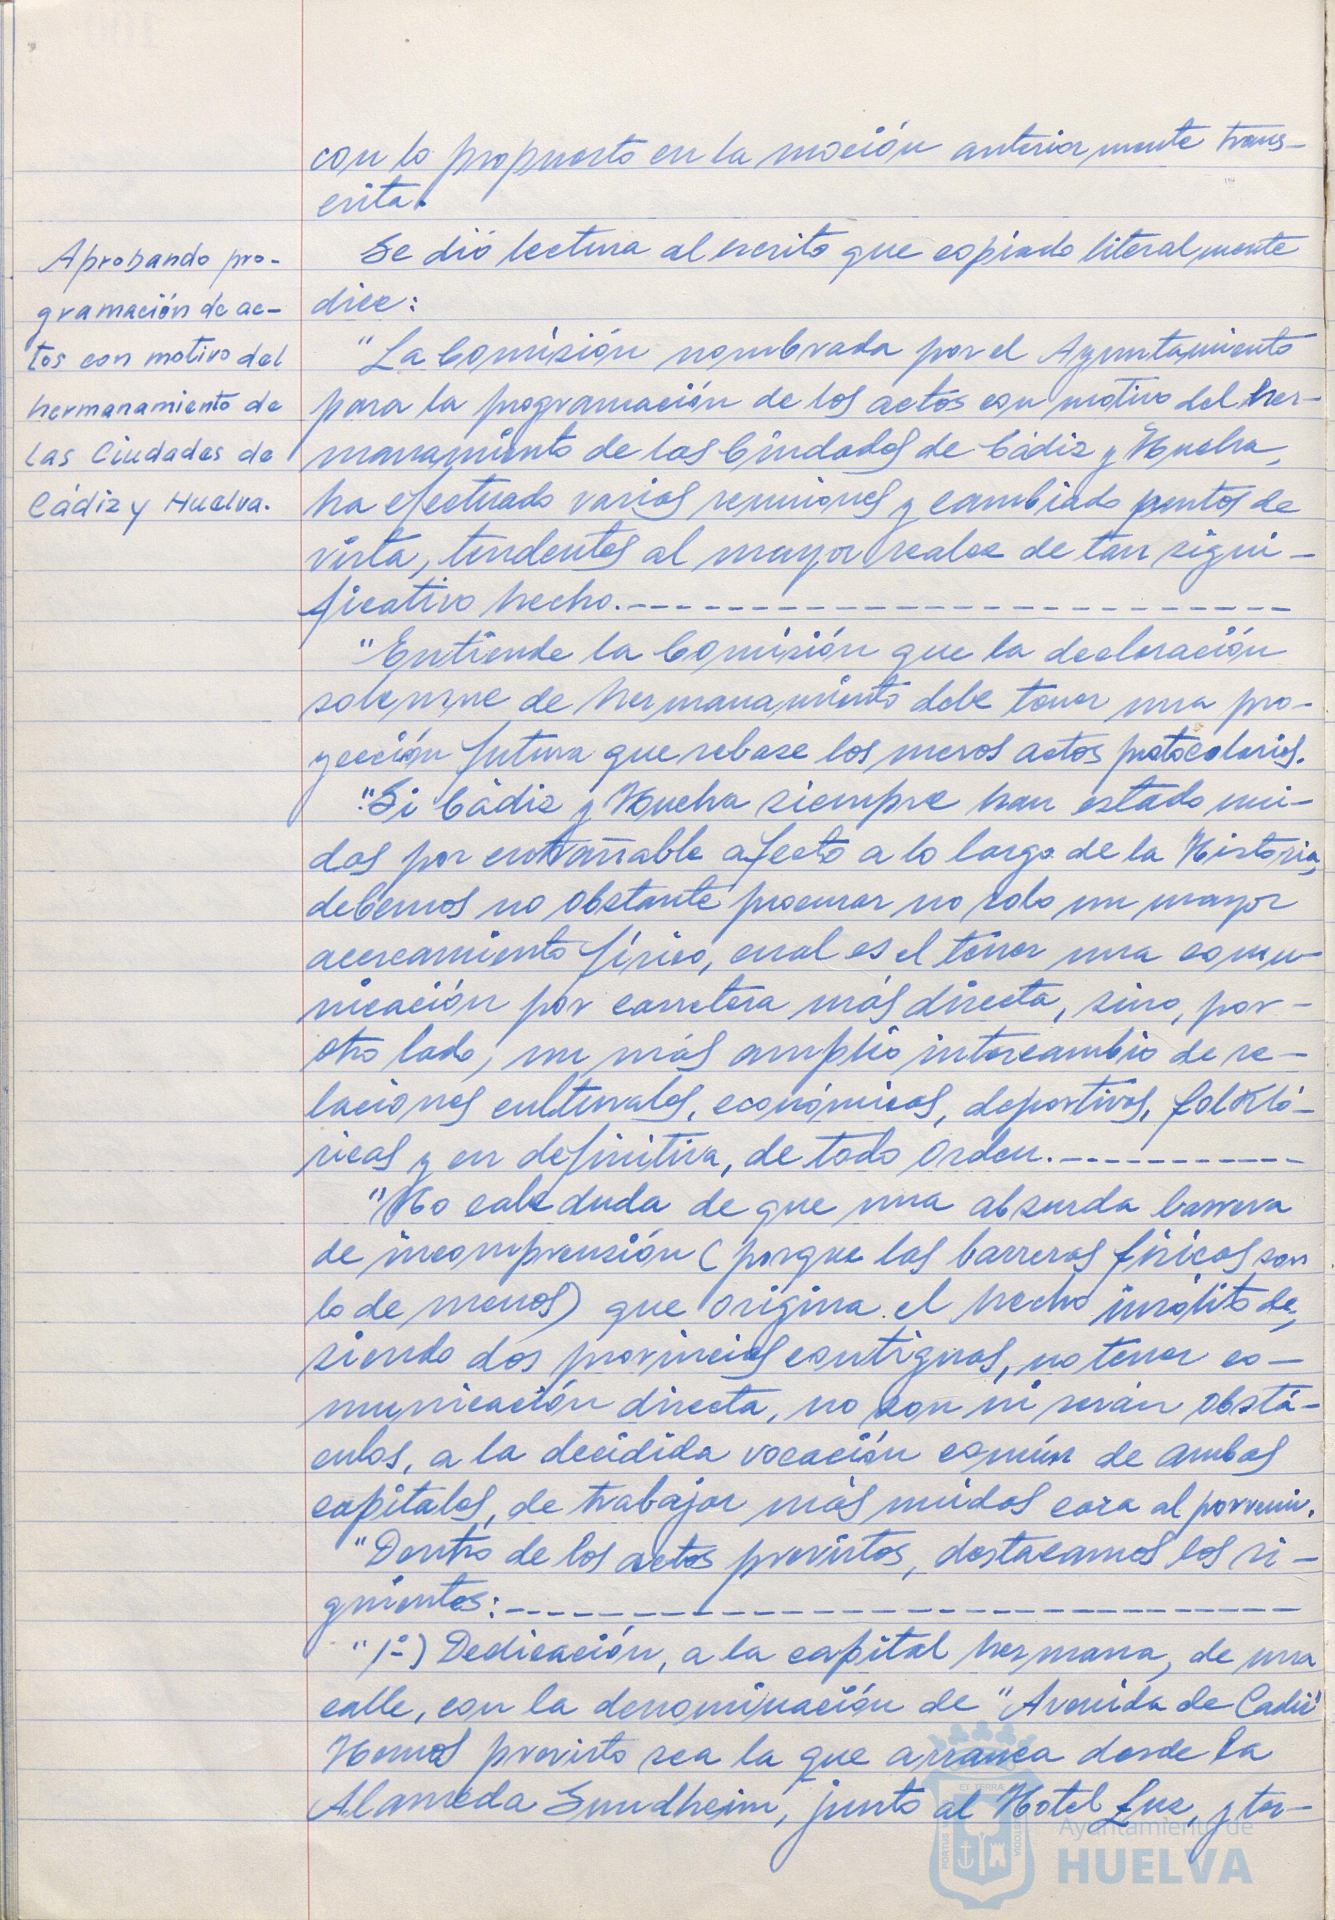 con lo propuesto en la moción anteriormente trans-
crita.
Aprobando pro-
gramación de ac-
tos con motivo del
hermanamiento de
las Ciudades de
Cádiz y Huelva.
Se dió lectura al escrito que copiado literalmente
dice:
"La Comisión nombrada por el Ayuntamiento
para la programación de los actos con motivo del her-
manamiento de las Ciudades de Cádiz y Huelva,
ha efectuado varias reuniones y cambiado puntos de
vista, tendentes al mayor realce de tan signi-
ficativo hecho.-----------------------
"Entiende la Comisión que la declaración
solemne de hermanamiento debe tener una pro-
yección futura que rebase los meros actos protocolarios.
"Si Cádiz y Huelva siempre han estado uni-
das por entrañable afecto a lo largo de la Historia,
debemos no obstante procurar no solo un mayor
acercamiento físico, cual es el tener una comu-
nicación por carretera más directa, sino, por-
otro lado, un más amplio intercambio de re-
laciones culturales, económicas, deportivas, folkló-
ricas y en definitiva, de todo orden.-----------
"No cabe duda de que una absurda barrera
de incomprensión (porque las barreras físicas son
lo de menos) que origina el hecho insólito de,
siendo dos provincias contiguas, no tener co-
municación directa, no son ni serán obstá-
culos, a la decidida vocación común de ambas
capitales, de trabajar más unidas cara al porvenir.
"Dentro de los actos previstos, destacamos los si-
guientes:---------------------------
"1º) Dedicación, a la capital hermana, de una
calle, con la denominación de "Avenida de Cadiz"
Hemos previsto sea la que arranca desde la
Alameda Sundheim, junto al Hotel Luz, y ter-
ET TERRÆ
PORTUS
CUSTODIA
Ayuntamiento de
HUELVA